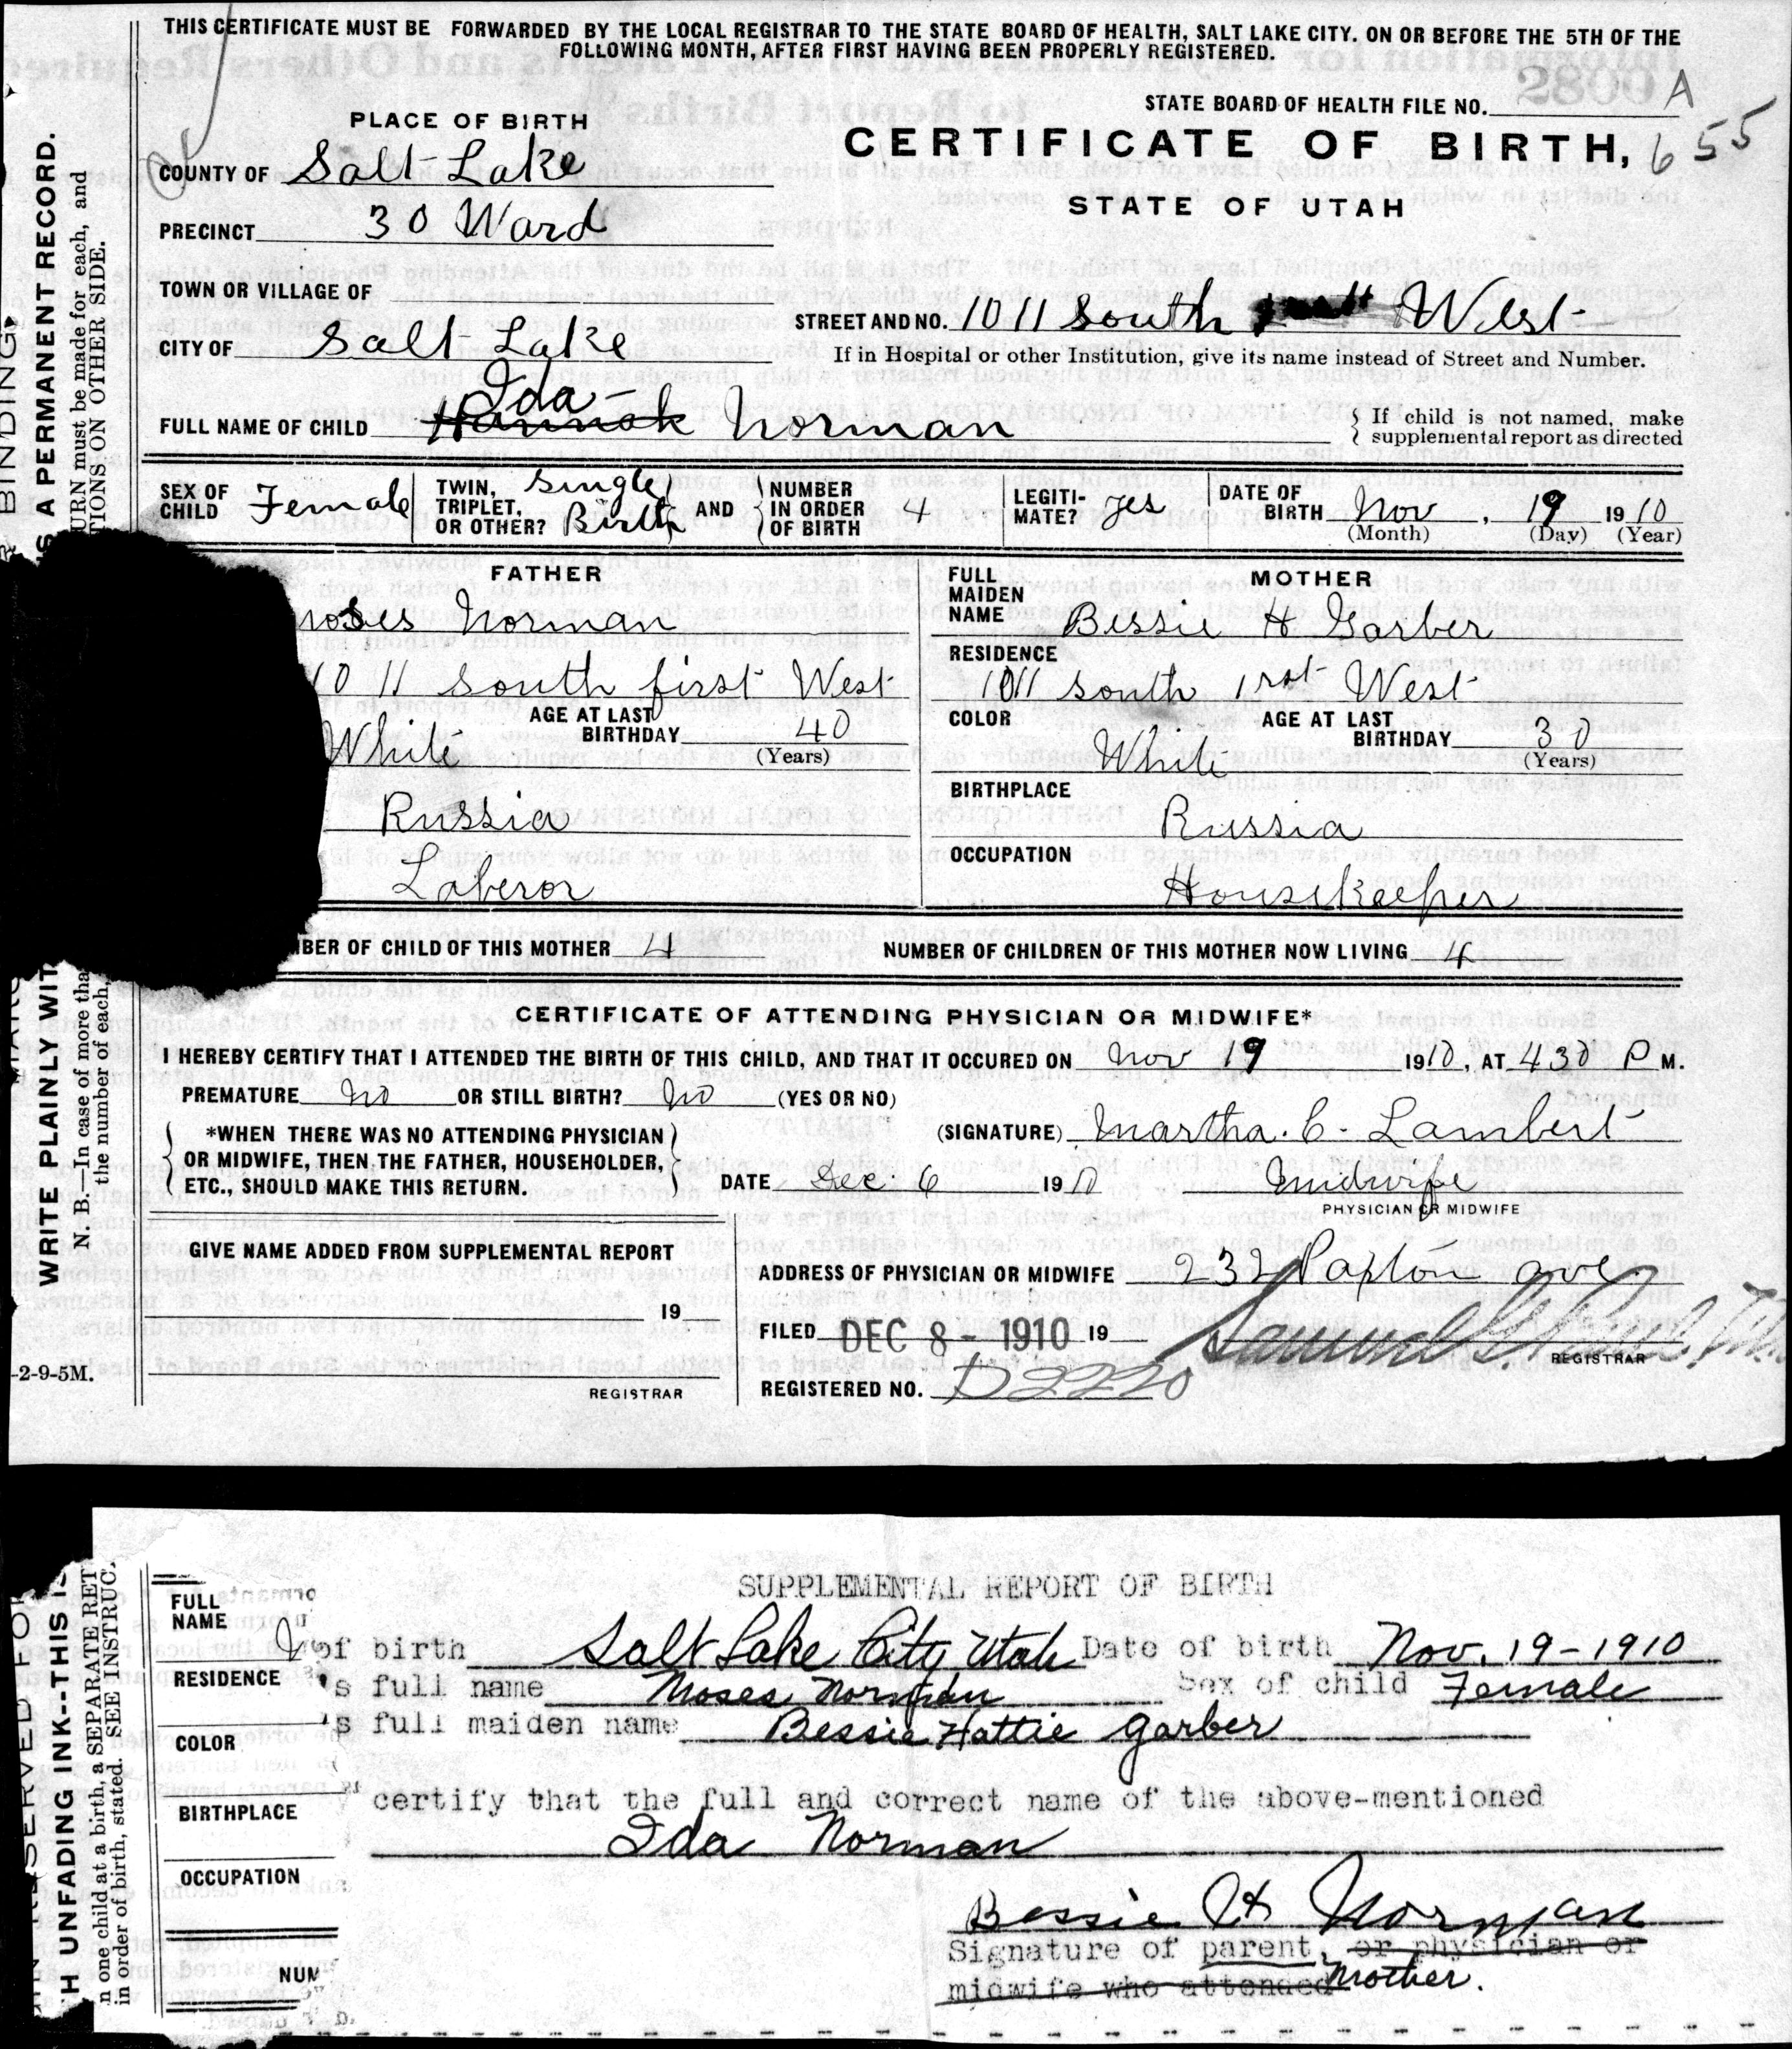 THIS CERTIFICATE MUST BE FORWARDED BY THE LOCAL REGISTRAR TO THE STATE BOARD OF HEALTH, SALT LAKE CITY. ON OR BEFORE THE 5TH OF THE
FOLLOWING MONTH, AFTER FIRST HAVING BEEN PROPERLY REGISTERED.
STATE BOARD OF HEALTH FILE NO. A
PLACE OF BIRTH
CERTIFICATE OF BIRTH, 655
COUNTY OF Salt Lake
STATE OF UTAH
PRECINCT 30 Ward
TOWN OR VILLAGE OF
STREET AND NO. 1011 South West
CITY OF Salt Lake
If in Hospital or other Institution, give its name instead of Street and Number.
Ida
FULL NAME OF CHILD Hannah Norman
If child is not named, make
supplemental report as directed
SEX OF CHILD Female
TWIN, TRIPLET, OR OTHER? Single Birth AND NUMBER IN ORDER OF BIRTH 4
LEGITI-MATE? yes
DATE OF BIRTH Nov, 19 1910
(Month) (Day) (Year)
FATHER
Moses Norman
1011 South first West
White AGE AT LAST BIRTHDAY 40
(Years)
Russia
Laberor
MOTHER
FULL MAIDEN NAME Bessie H Garber
RESIDENCE
1011 South 1rst West
COLOR White AGE AT LAST BIRTHDAY 30
(Years)
BIRTHPLACE
Russia
OCCUPATION
Housekeeper
BER OF CHILD OF THIS MOTHER 4 NUMBER OF CHILDREN OF THIS MOTHER NOW LIVING 4
CERTIFICATE OF ATTENDING PHYSICIAN OR MIDWIFE*
I HEREBY CERTIFY THAT I ATTENDED THE BIRTH OF THIS CHILD, AND THAT IT OCCURED ON Nov 19 1910, AT 430 P M.
PREMATURE No OR STILL BIRTH? No (YES OR NO)
*WHEN THERE WAS NO ATTENDING PHYSICIAN
OR MIDWIFE, THEN THE FATHER, HOUSEHOLDER,
ETC., SHOULD MAKE THIS RETURN.
(SIGNATURE) Martha. C. Lambert
DATE Dec. 6 1910 Midwife
PHYSICIAN OR MIDWIFE
GIVE NAME ADDED FROM SUPPLEMENTAL REPORT
19
REGISTRAR
ADDRESS OF PHYSICIAN OR MIDWIFE 232 Paxton ave.
FILED DEC 8 - 1910 19
REGISTRAR
REGISTERED NO. D2220
-2-9-5M.
BINDING
S A PERMANENT RECORD.
URN must be made for each, and
TIONS ON OTHER SIDE.
WRITE PLAINLY WIT
N. B.—In case of more tha
the number of each,
SUPPLEMENTAL REPORT OF BIRTH
of birth Salt Lake City, Utah Date of birth Nov. 19-1910
's full name Moses Norman Sex of child Female
's full maiden name Bessie Hattie Garber
certify that the full and correct name of the above-mentioned
Ida Norman
Bessie H Norman
Signature of parent, or physician or
midwife who attended Mother.
FULL NAME
RESIDENCE
COLOR
BIRTHPLACE
OCCUPATION
NUM
SERVED FO
H UNFADING INK--THIS IS
n one child at a birth, a SEPARATE RET
in order of birth, stated. SEE INSTRUC.